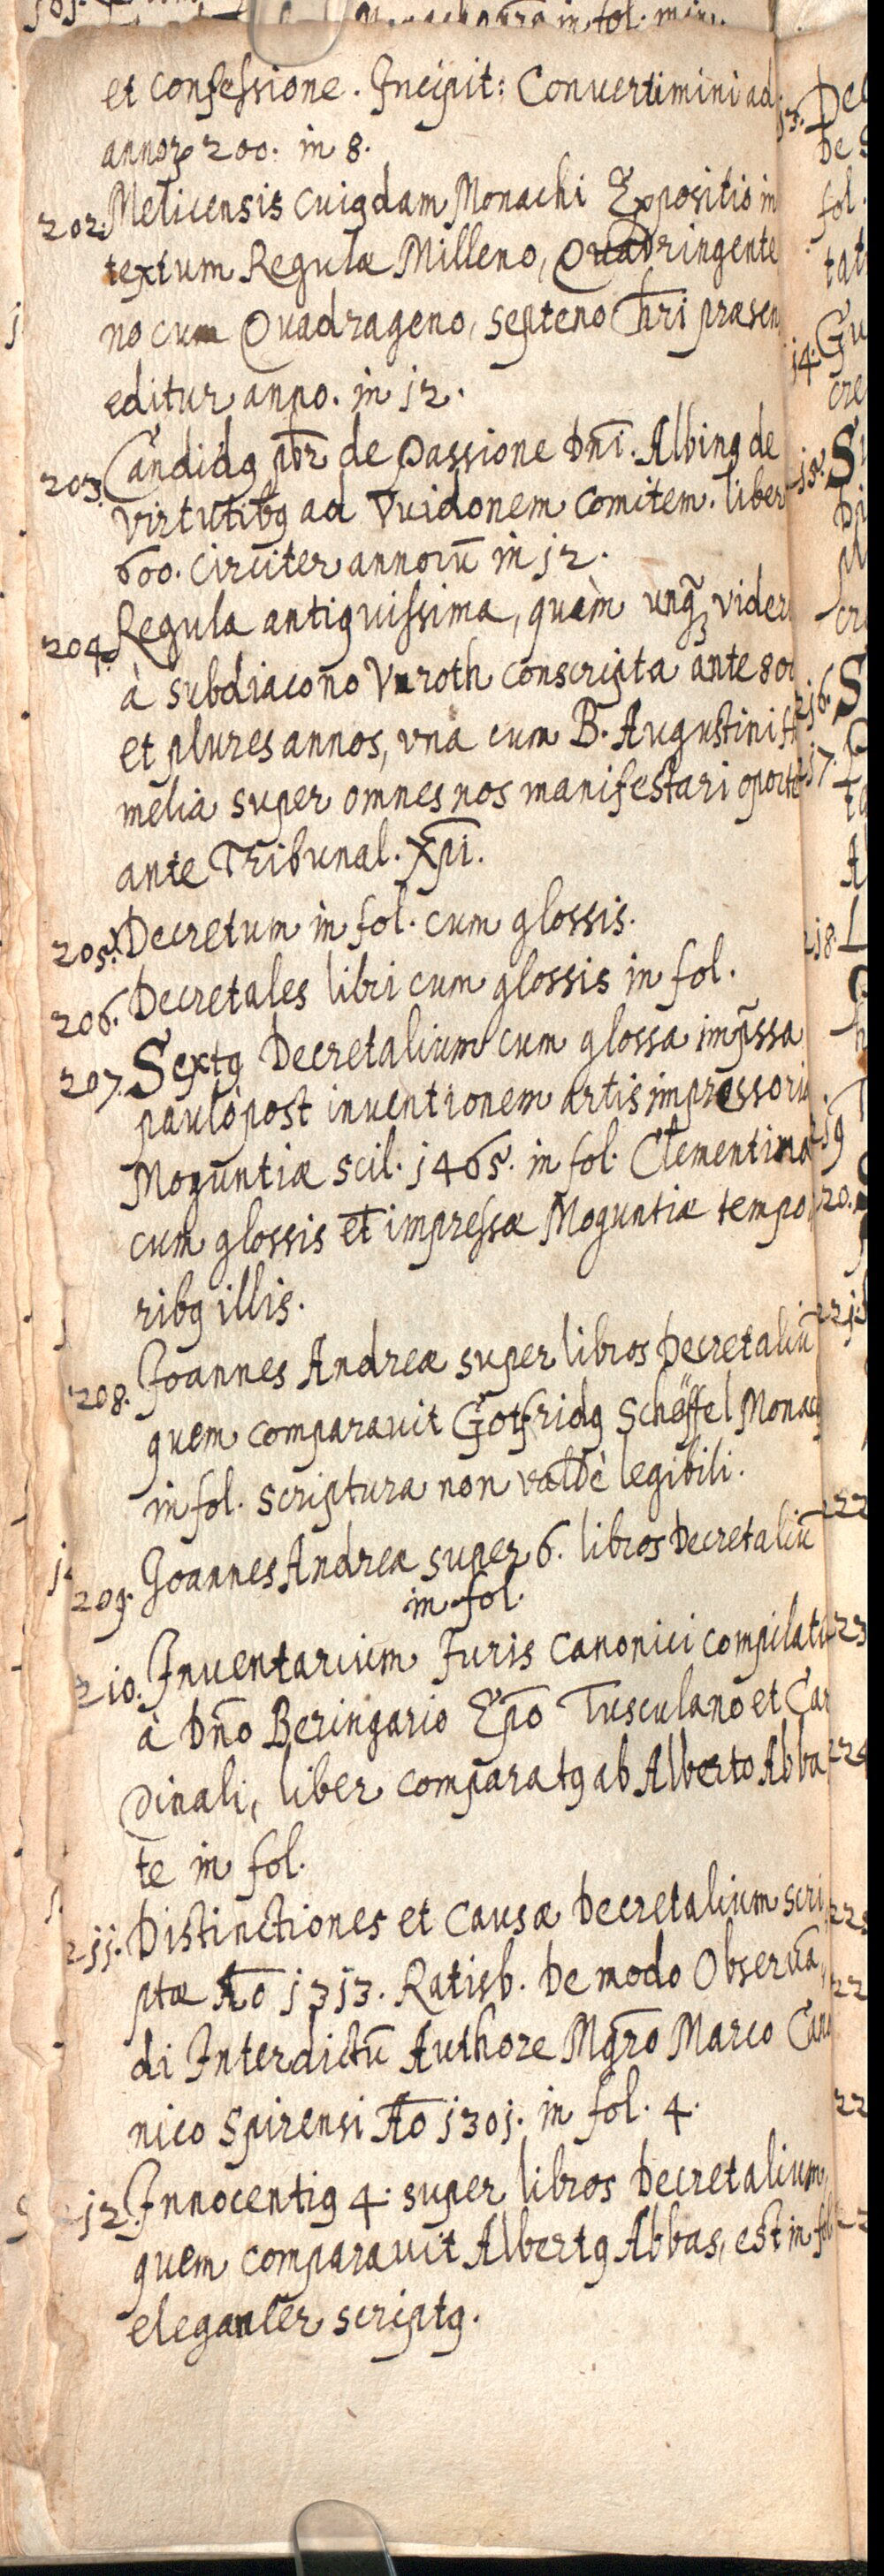 et confessione. Incipit: Convertimini ad
annorꝝ 200. in 8.
202. Melicensis cuiqdam Monachi Expositio in
textum Regulæ Milleno, Quadringente
no cum Quadrageno, septeno Chri præsen
editur anno. in j2.
203. Candidꝯ pbr̄ de Passione Dnī. Albinꝯ de
virtutibꝯ ad Vuidonem Comitem. liber
600. circiter annorū in j2.
204. Regula antiquissima, quàm unq̃ȝ vider
à subdiacono Vuroth conscripta ante 800
et plures annos, vna cum B. Augustini
melia super omnes nos manifestari oporte
ante Tribunal. Xp̄i.
205. Decretum in fol. cum glossis.
206. Decretales libri cum glossis in fol.
207. Sextꝯ Decretalium cum glossa imp̄ssa
paulò post inventionem artis impressoriæ
Moguntiæ scil. j465. in fol. Clementinæ
cum glossis et impressæ Moguntiæ tempo
ribꝯ illis.
208. Joannes Andreæ super libros Decretaliū
quem comparavit Gotfridꝯ Schäffel Monacꝯ
in fol. scriptura non valdè legibili.
209. Joannes Andreæ super 6. libros Decretaliū
in fol.
2j0. Inventarium Juris Canonici compilatū
à Dn̄o Beringario Ep̄o Tusculano et Car
dinali, liber comparatꝯ ab Alberto Abba
te in fol.
2jj. Distinctiones et Causæ Decretalium scri
ptæ Āo j3j3. Ratisb. De modo Observā
di Interdictū Authore Mgr̄o Marco Cano
nico Spirensi Āo j30j. in fol. 4.
j2. Innocentiꝯ 4. super libros Decretalium,
quem comparavit Albertꝯ Abbas, est in fol
eleganter scriptꝯ.